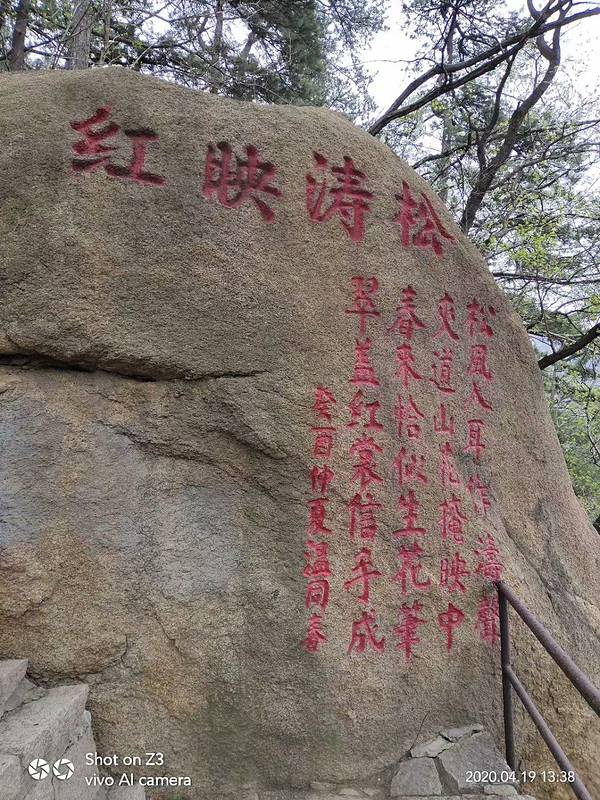 松涛映红
松風入耳作濤聲
夾道山花掩映中
春来恰似生花筆
翠盖红裳信手成
癸酉仲夏温同春
Shot on Z3
vivo AI camera
2020.04.19 13:38